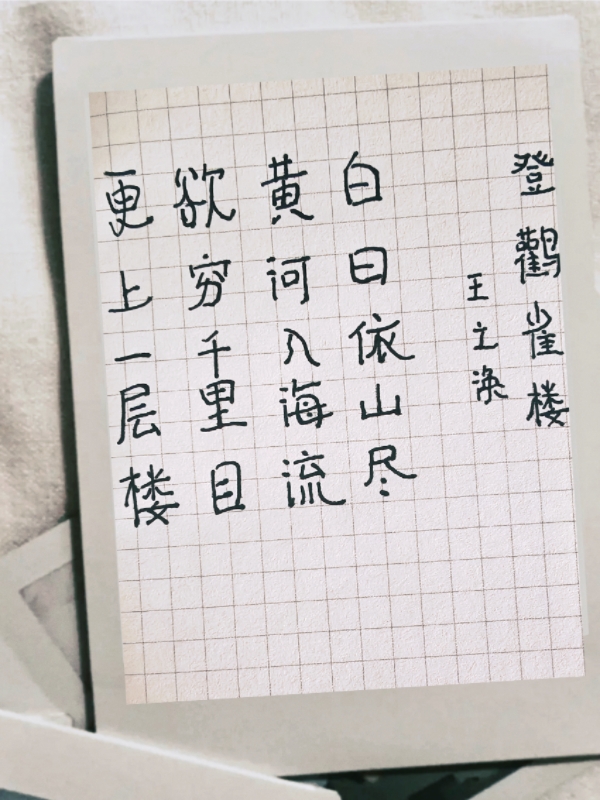 登鸛雀楼
王之涣
白日依山尽
黄河入海流
欲穷千里目
更上一层楼